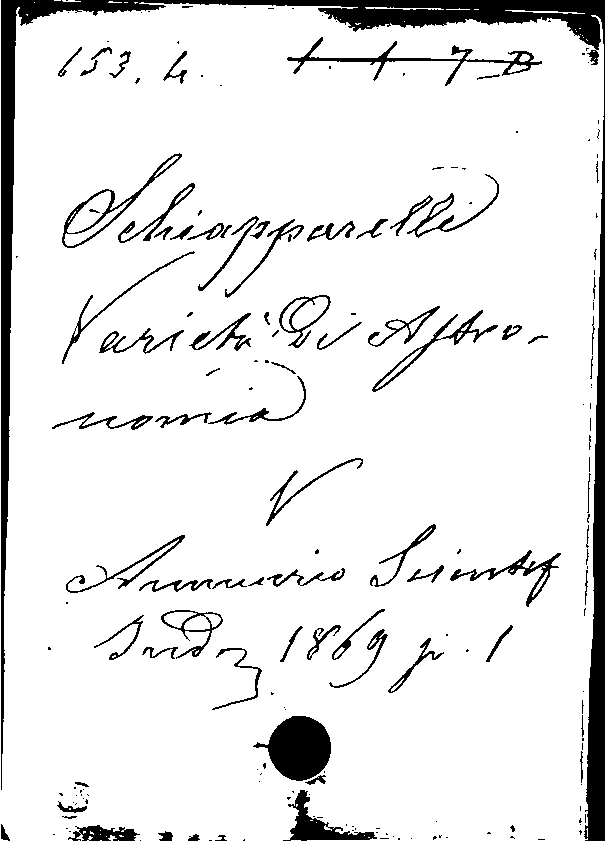 653. 4. 1. 1. 7 B
Schiapparelli
Varietà di Astro-
nomia
V
Annuario Scientif
Ind 1869 p. 1